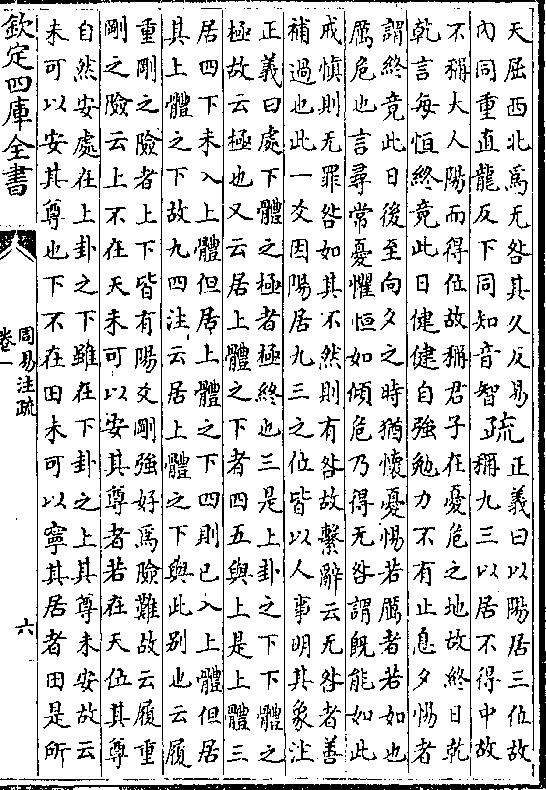 天屈西北爲无咎其久反易
内同重直龍反下同知音智
疏
正義曰以陽居三位故
稱九三以居不得中故
不稱大人陽而得位故稱君子在憂危之地故終日乾
乾言每恒終竟此日健健自強勉力不有止息夕惕者
謂終竟此日後至向夕之時猶懷憂惕若厲者若如也
厲危也言尋常憂懼恒如傾危乃得无咎謂既能如此
戒慎則无罪咎如其不然則有咎故繫辭云无咎者善
補過也此一爻因陽居九三之位皆以人事明其象注
正義曰處下體之極者極終也三是上卦之下下體之
極故云極也又云居上體之下者四五與上是上體三
居四下未入上體但居上體之下四則已入上體但居
其上體之下故九四注云居上體之下與此别也云履
重剛之險者上下皆有陽爻剛強好爲險難故云履重
剛之險云上不在天未可以安其尊者若在天位其尊
自然安處在上卦之下雖在下卦之上其尊未安故云
未可以安其尊也下不在田未可以寧其居者田是所
欽定四庫全書
周易注疏
卷一
六